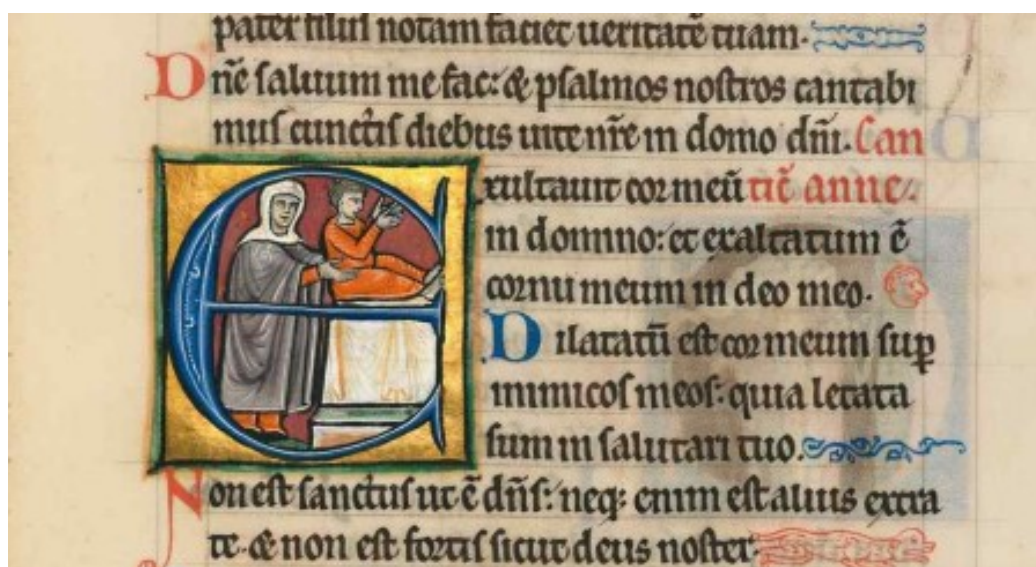 pater filiis notam faciet ueritatē tuam.
Dn̄e saluum me fac: & psalmos nostros cantabi
mus cunctis diebus uite nr̄e in domo dn̄i. Can
Exultauit cor meū tic̄ anne.
in domino: et exaltatum ē
cornu meum in deo meo.
Dilatatū est cor meum sup̄
inimicos meos: quia letata
sum in salutari tuo.
Non est sanctus ut ē dn̄s: neq; enim est alius extra
te. & non est fortis sicut deus noster.